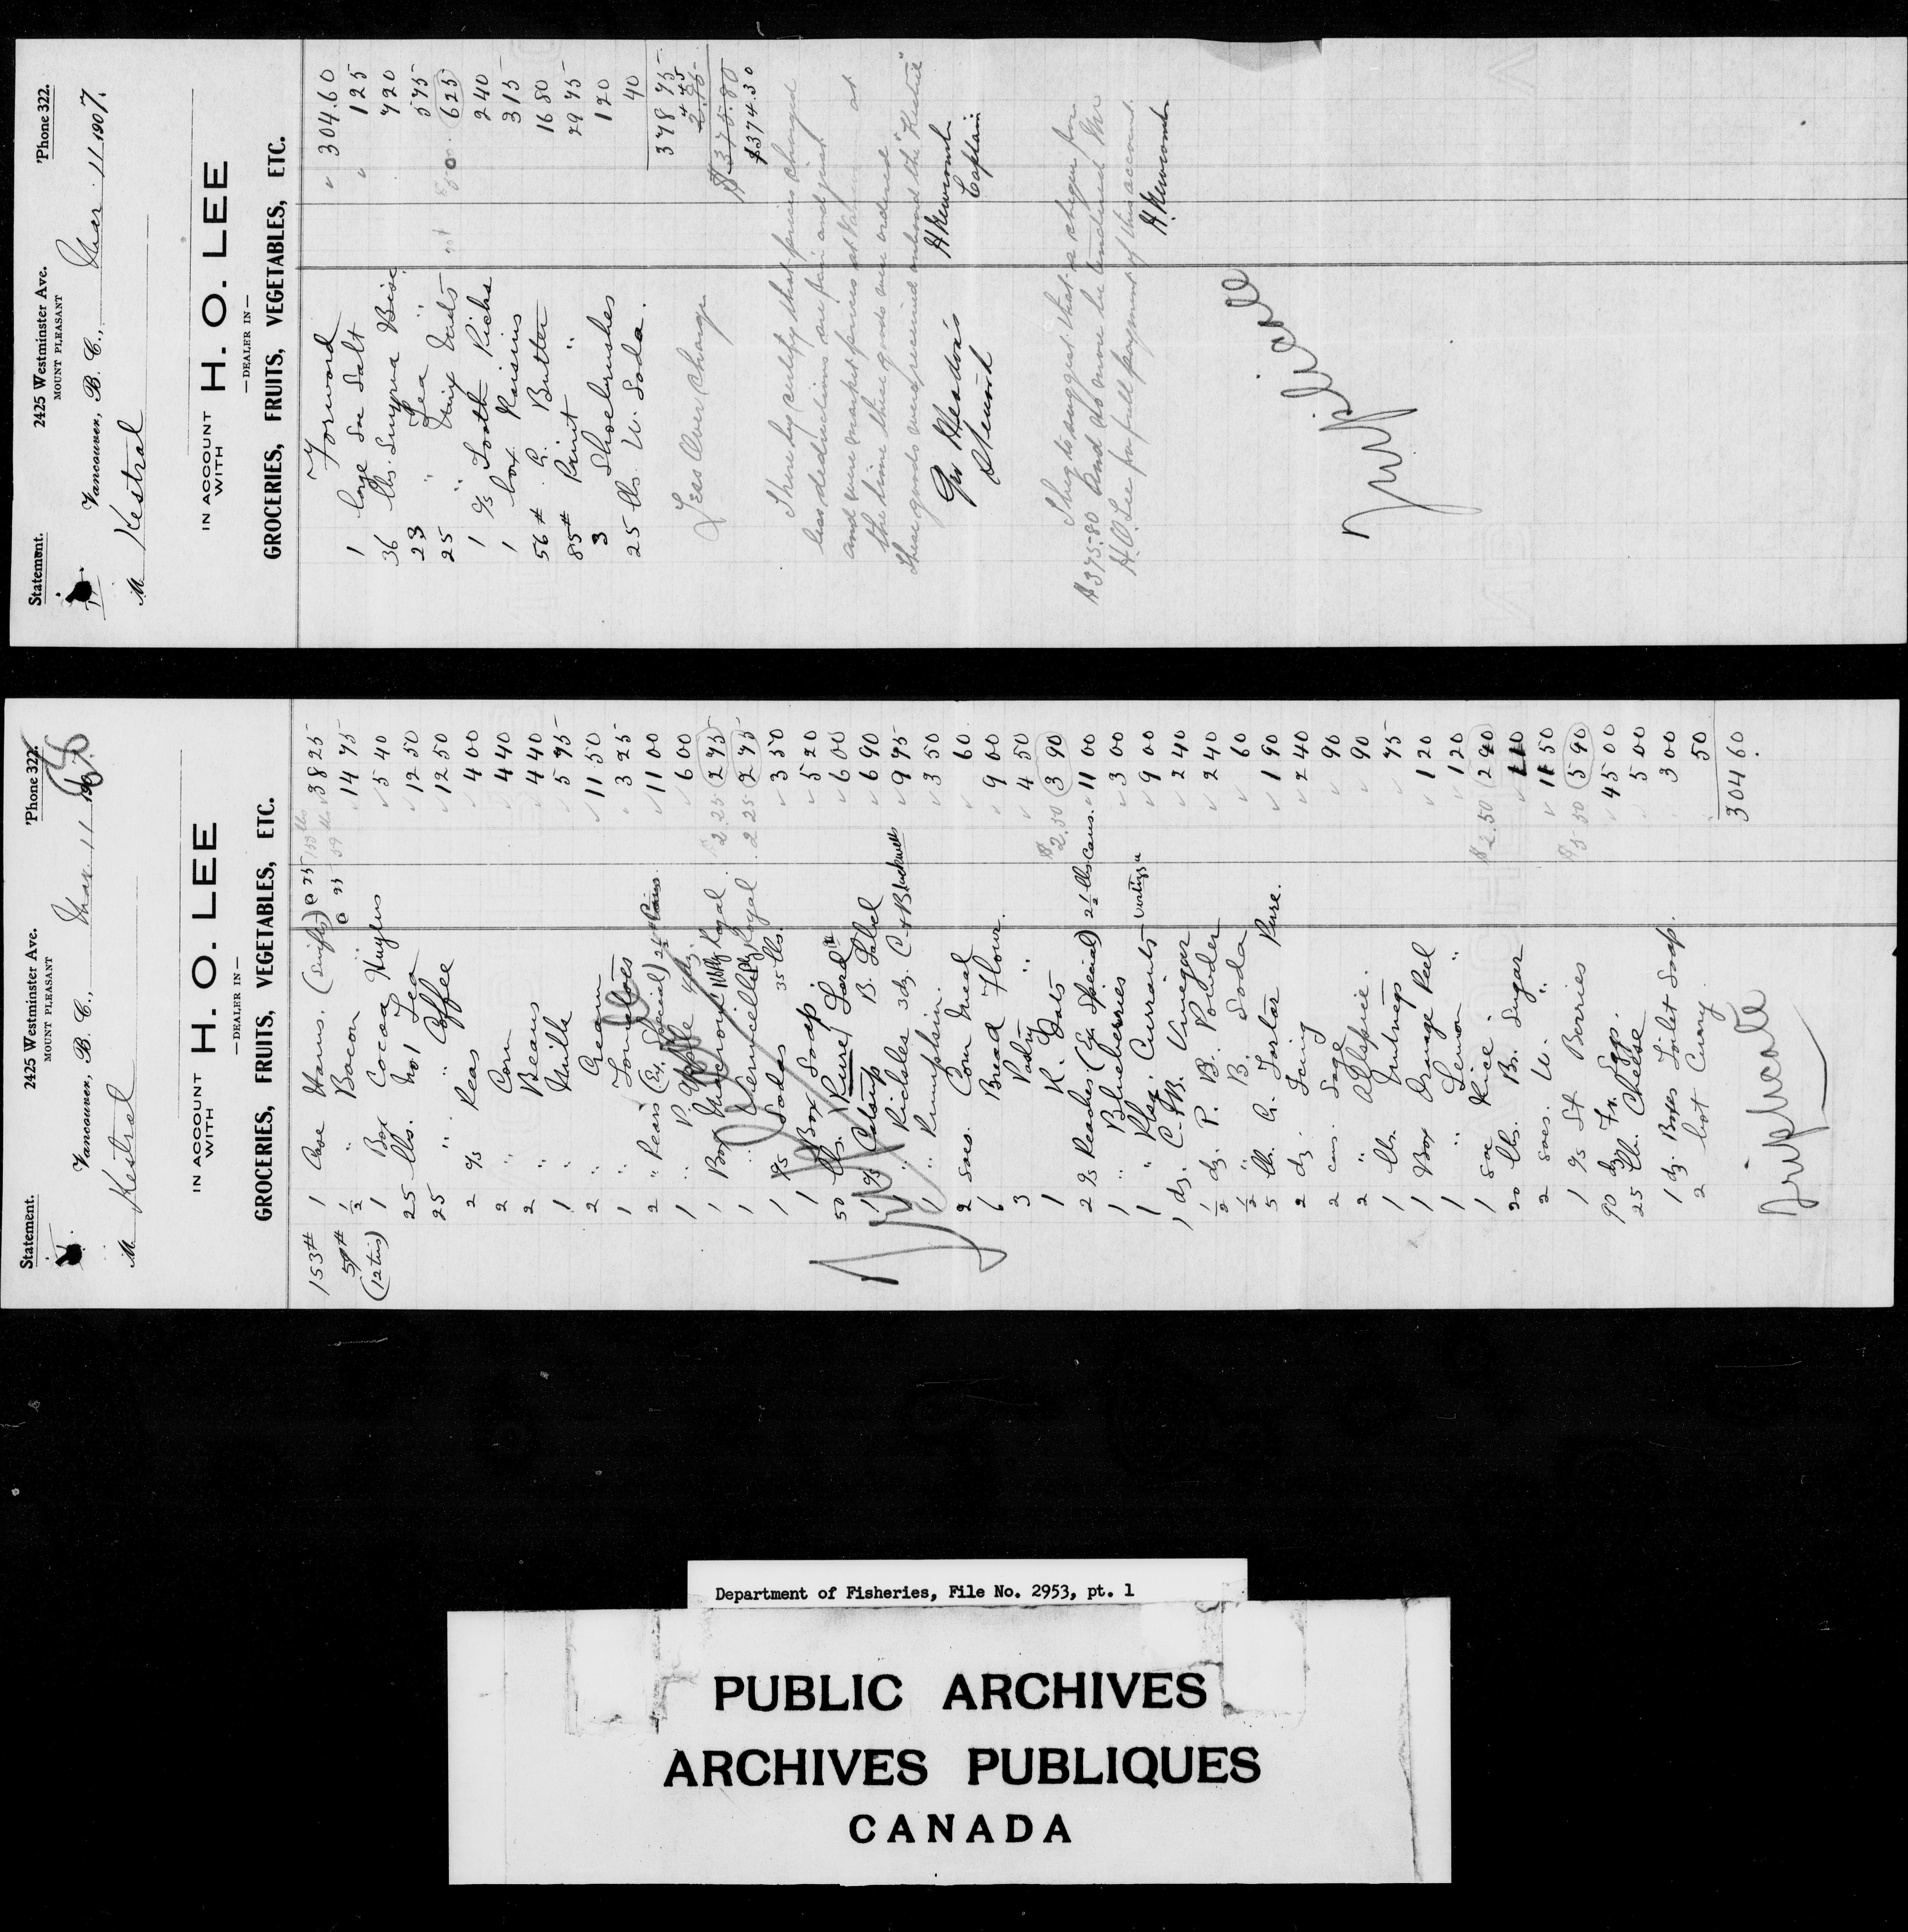 Statement.
2425 Westminster Ave.
'Phone 322.
MOUNT PLEASANT
Vancouver, B. C., Mar. 11 1907.
M Kestrel
IN ACCOUNT WITH H. O. LEE
—DEALER IN—
GROCERIES, FRUITS, VEGETABLES, ETC.
Forward 304.60
1 large Sac Salt 1 25
36 lbs. Smyrna 7 20
23 " Sea " 5 75
25 " 6 25
1 c/s Tooth Picks 2 40
1 box Raisins 3 15
56# G. Butter 16 80
85# Print " 29 75
3 Shoebrushes 1 20
25 lbs W. Soda. 40
378 75
4 45
Less Over Charge
$375.80
$374.30
I hereby certify that prices charged
less deductions are fair and just
and were market prices at Vancouver at
the time these goods were ordered.
These goods were received onboard the "Kestrel"
H Newcomb
Captain
Steward
I beg to suggest that a cheque for
$375.80 and no more be tendered Mr
H.O. Lee for full payment of this account.
H. Newcomb
Triplicate
Statement.
2425 Westminster Ave.
'Phone 322.
MOUNT PLEASANT
Vancouver, B. C., Mar. 11 190
M Kestrel
IN ACCOUNT WITH H. O. LEE
—DEALER IN—
GROCERIES, FRUITS, VEGETABLES, ETC.
153# 1 Case Hams. (Swifts) @ 25 153 lbs 38 25
59# 1/2 " Bacon @ 25 59 lbs 14 75
(12 tins) 1 Box Cocoa Huylers 5 40
25 lbs. No 1 Tea 12 50
25 " " Coffee 12 50
2 c/s Peas 4 00
2 " Corn 4 40
2 " Beans 4 40
1 " Milk 5 75
2 " Cream 11 50
1 " Tomatoes 3 25
2 " Pears (Ex. Special) 2½# Cans 11 00
1 " P. Apple 6 00
1 Box Macaroni Royal $2.25 2 75
1 " Vermicelli Royal 2 25 2 75
1 c/s Sodas 35 lbs. 3 50
1 Box Soap 5 20
50 lbs. Pure Lard 6 00
1 c/s Catsup B. Label 6 90
1 " Pickles 3 dz. C & Blackwell 9 75
1 " Pumpkin. 3 50
2 Sacs. Corn Meal 60
6 " Bread Flour. 9 00
3 " Pastry " 4 50
1 " R. Oats $2.50 3 90
2 c/s Peaches (Ex. Special) 2½ lbs Cans. 11 00
1 " Blueberries 3 00
1 " Currants 9 00
1 dz. C. & B. Vinegar 2 40
1/2 dz. P. B. Powder 2 40
1/2 " B. Soda 60
5 lb. C. Tartar Pure. 1 90
2 dz. Icing 2 40
2 cans. Sage 90
2 " Allspice. 90
1 lb. Nutmegs 75
1 Box Orange Peel 1 20
1 " Lemon " 1 20
1 Sac Rice $2.50 2 90
20 lbs. Br. Sugar 1 10
2 sacs. W. " 11 50
1 c/s St Berries $5.50 5 90
90 dz Fr. Eggs. 45 00
25 lb. Cheese 5 00
1 dz. Boxes Toilet Soap. 3 00
2 bot Curry. 50
304 60.
Triplicate
Department of Fisheries, File No. 2953, pt. 1
PUBLIC ARCHIVES
ARCHIVES PUBLIQUES
CANADA